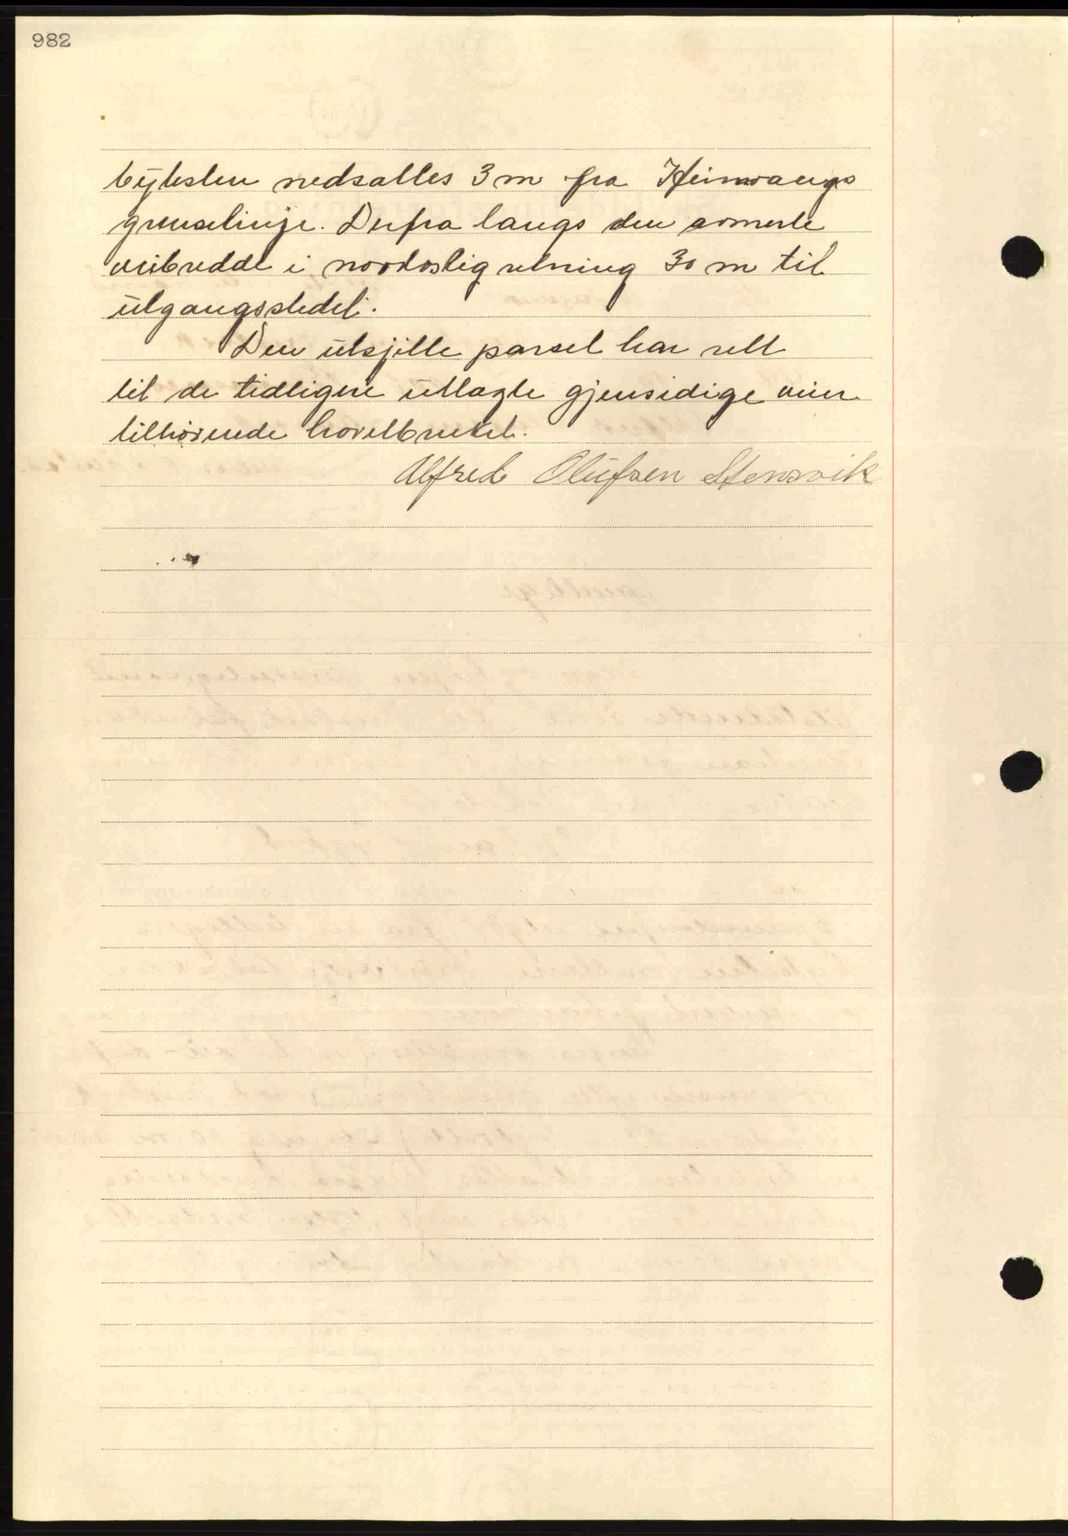 982
bytesten nedsattes 3 m fra Heimvangs
grenselinje. Derfra langs den somerte
veibredde i nordostlig retning 30 m til
utgangsstedet.
Den utsjilte parsel har rett
til de tidligere utlagte gjensidige veier
tilhørende hovedbruket.
Alfred Olufsen Stensvik